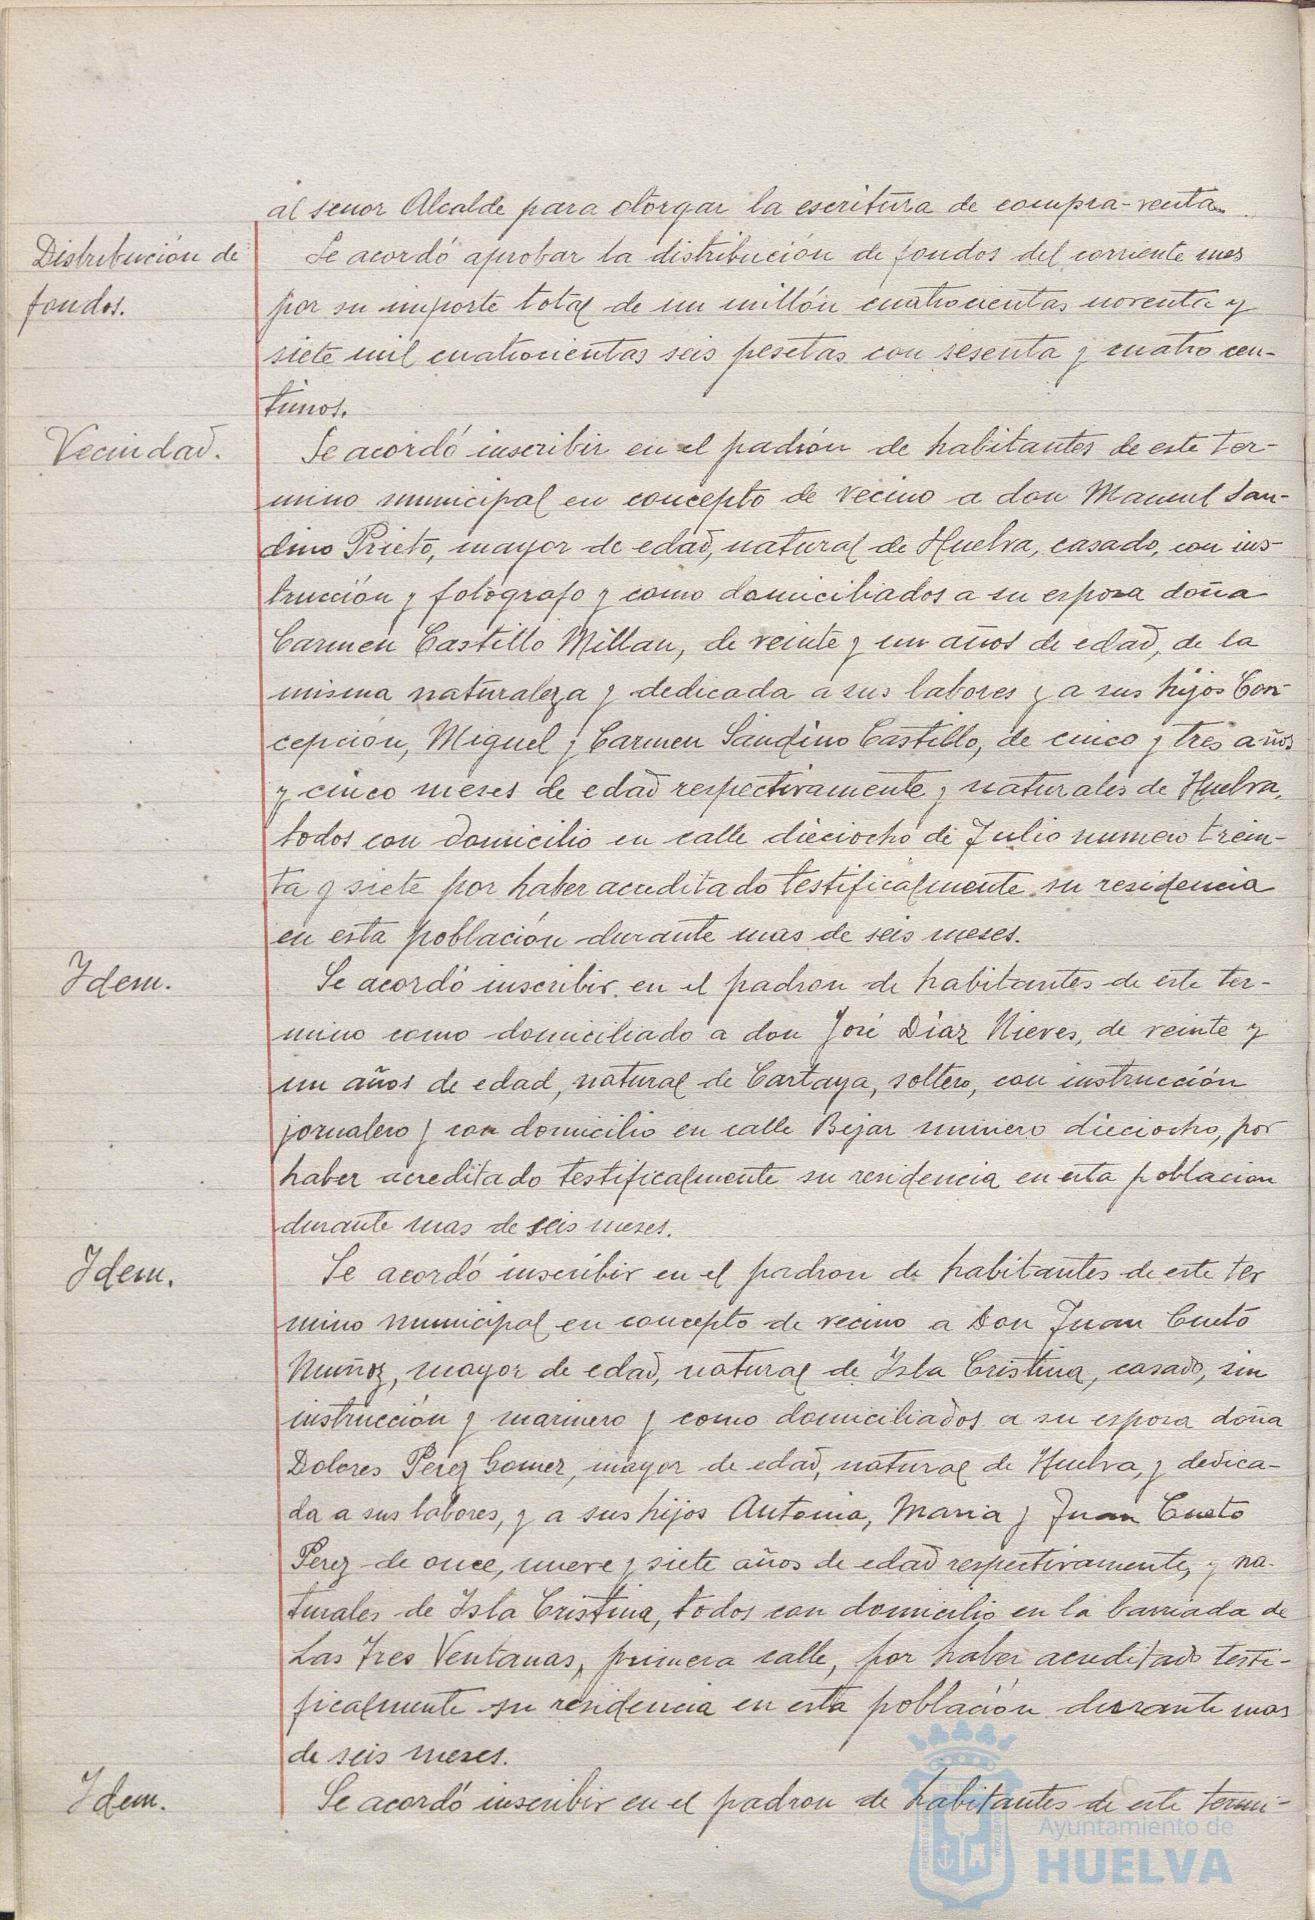 al señor Alcalde para otorgar la escritura de compra-venta.
Distribución de
fondos.
Se acordó aprobar la distribución de fondos del corriente mes
por su importe total de un millón cuatrocientas noventa y
siete mil cuatrocientas seis pesetas con sesenta y cuatro cen-
timos.
Vecindad.
Se acordó inscribir en el padrón de habitantes de este ter-
mino municipal en concepto de vecino a don Manuel San-
dino Prieto, mayor de edad, natural de Huelva, casado, con ins-
trucción y fotógrafo y como domiciliados a su esposa doña
Carmen Castillo Millan, de veinte y un años de edad, de la
misma naturaleza y dedicada a sus labores y a sus hijos Con-
cepción, Miguel y Carmen Sandino Castillo, de cinco y tres años
y cinco meses de edad respectivamente y naturales de Huelva,
todos con domicilio en calle dieciocho de Julio numero trein-
ta y siete por haber acreditado testificalmente su residencia
en esta población durante mas de seis meses.
Idem.
Se acordó inscribir en el padron de habitantes de este ter-
mino como domiciliado a don José Diaz Nieves, de veinte y
un años de edad, natural de Cartaya, soltero, con instrucción
jornalero y con domicilio en calle Bejar numero dieciocho, por
haber acreditado testificalmente su residencia en esta poblacion
durante mas de seis meses.
Idem.
Se acordó inscribir en el padron de habitantes de este ter
mino municipal en concepto de vecino a Don Juan Cueto
Muñoz, mayor de edad, natural de Isla Cristina, casado, sin
instrucción y marinero y como domiciliados a su esposa doña
Dolores Perez Gomez, mayor de edad, natural de Huelva, y dedica-
da a sus labores, y a sus hijos Antonia, Maria y Juan Cueto
Perez de once, nueve y siete años de edad respectivamente, y na-
turales de Isla Cristina, todos con domicilio en la barriada de
Las Tres Ventanas, primera calle, por haber acreditado testi-
ficalmente su residencia en esta población durante mas
de seis meses.
Idem.
Se acordó inscribir en el padron de habitantes de este termi-
Ayuntamiento de
HUELVA